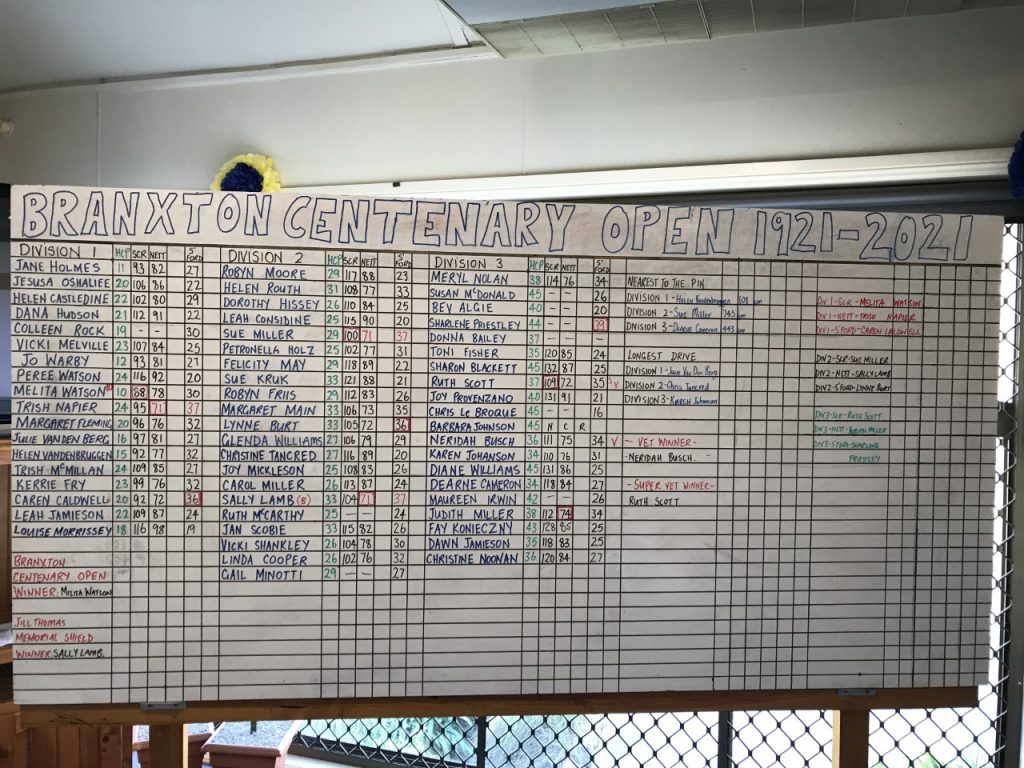 BRANXTON CENTENARY OPEN 1921-2021
DIVISION 1 HCP SCR NETT S'FORD
JANE HOLMES 11 93 82 27
JESUSA OSHALIEE 20 106 86 22
HELEN CASTLEDINE 22 102 80 29
DANA HUDSON 21 112 91 22
COLLEEN ROCK 19 - - 30
VICKI MELVILLE 23 107 84 25
JO WARBY 12 93 81 27
PEREE WATSON 24 116 92 20
MELITA WATSON (B) 10 88 78 30
TRISH NAPIER 24 95 71 37
MARGARET FLEMING 20 96 76 32
JULIE VANDEN BERG 16 97 81 27
HELEN VANDENBRUGGEN 15 92 77 32
TRISH McMILLAN 24 109 85 27
KERRIE FRY 23 99 76 32
CAREN CALDWELL 20 92 72 36
LEAH JAMIESON 22 109 87 24
LOUISE MORRISSEY 18 116 98 19
BRANXTON
CENTENARY OPEN
WINNER: MELITA WATSON
JILL THOMAS
MEMORIAL SHIELD
WINNER: SALLY LAMB.
DIVISION 2 HCP SCR NETT S'FORD
ROBYN MOORE 29 117 88 23
HELEN ROUTH 31 108 77 33
DOROTHY HISSEY 26 110 84 25
LEAH CONSIDINE 25 115 90 20
SUE MILLER 29 100 71 37
PETRONELLA HOLZ 25 102 77 31
FELICITY MAY 29 118 89 22
SUE KRUK 33 121 88 21
ROBYN FRIIS 29 112 83 26
MARGARET MAIN 33 106 73 35
LYNNE BURT 33 105 72 36
GLENDA WILLIAMS 27 106 79 29
CHRISTINE TANCRED 27 116 89 20
JOY MICKLESON 25 108 83 26
CAROL MILLER 26 113 87
SALLY LAMB (B) 33 104 71 37
RUTH McCARTHY 25 - - 24
JAN SCOBIE 33 115 82 26
VICKI SHANKLEY 26 104 78 30
LINDA COOPER 26 102 76 32
GAIL MINOTTI 29 - - 27
DIVISION 3 HCP SCR NETT S'FORD
MERYL NOLAN 38 114 76 34
SUSAN McDONALD 45 - - 26
BEV ALGIE 40 - - 20
SHARLENE PRIESTLEY 44 - - 39
DONNA BAILEY 37 - -
TONI FISHER 35 120 85 24
SHARON BLACKETT 45 132 87 25
RUTH SCOTT 37 109 72 35 SV
JOY PROVENZANO 40 131 91 21
CHRIS LE BROQUE 45 - - 16
BARBARA JOHNSON 45 N C R
NERIDAH BUSCH 36 111 75 34 V
KAREN JOHANSON 34 110 76 31
DIANE WILLIAMS 45 131 86 25
DEARNE CAMERON 34 118 84 27
MAUREEN IRWIN 42 - - 26
JUDITH MILLER 38 112 74 35
FAY KONIECZNY 43 128 85 34
DAWN JAMIESON 35 118 83 25
CHRISTINE NOONAN 36 120 84 27
NEAREST TO THE PIN
DIVISION 1 - Helen Vandenbruggen 608 cm
DIVISION 2 - Sue Miller 745 cm
DIVISION 3 - Dearne Cameron 443 cm
LONGEST DRIVE
DIVISION 1 - Julie Van Den Berg
DIVISION 2 - Chris Tancred
DIVISION 3 - KAREN Johanson
- VET WINNER -
- NERIDAH BUSCH. -
- SUPER VET WINNER -
RUTH SCOTT
DIV 1 - SCR - MELITA WATSON
DIV 1 - NETT - TRISH NAPIER
DIV 1 - S'FORD - CAREN CALDWELL
DIV 2 - SCR - SUE MILLER
DIV 2 - NETT - SALLY LAMB
DIV 2 - S'FORD - LYNNE BURT
DIV 3 - SCR - RUTH SCOTT
DIV 3 - NETT - JUDITH MILLER
DIV 3 - S'FORD - SHARLENE
PRIESTLEY